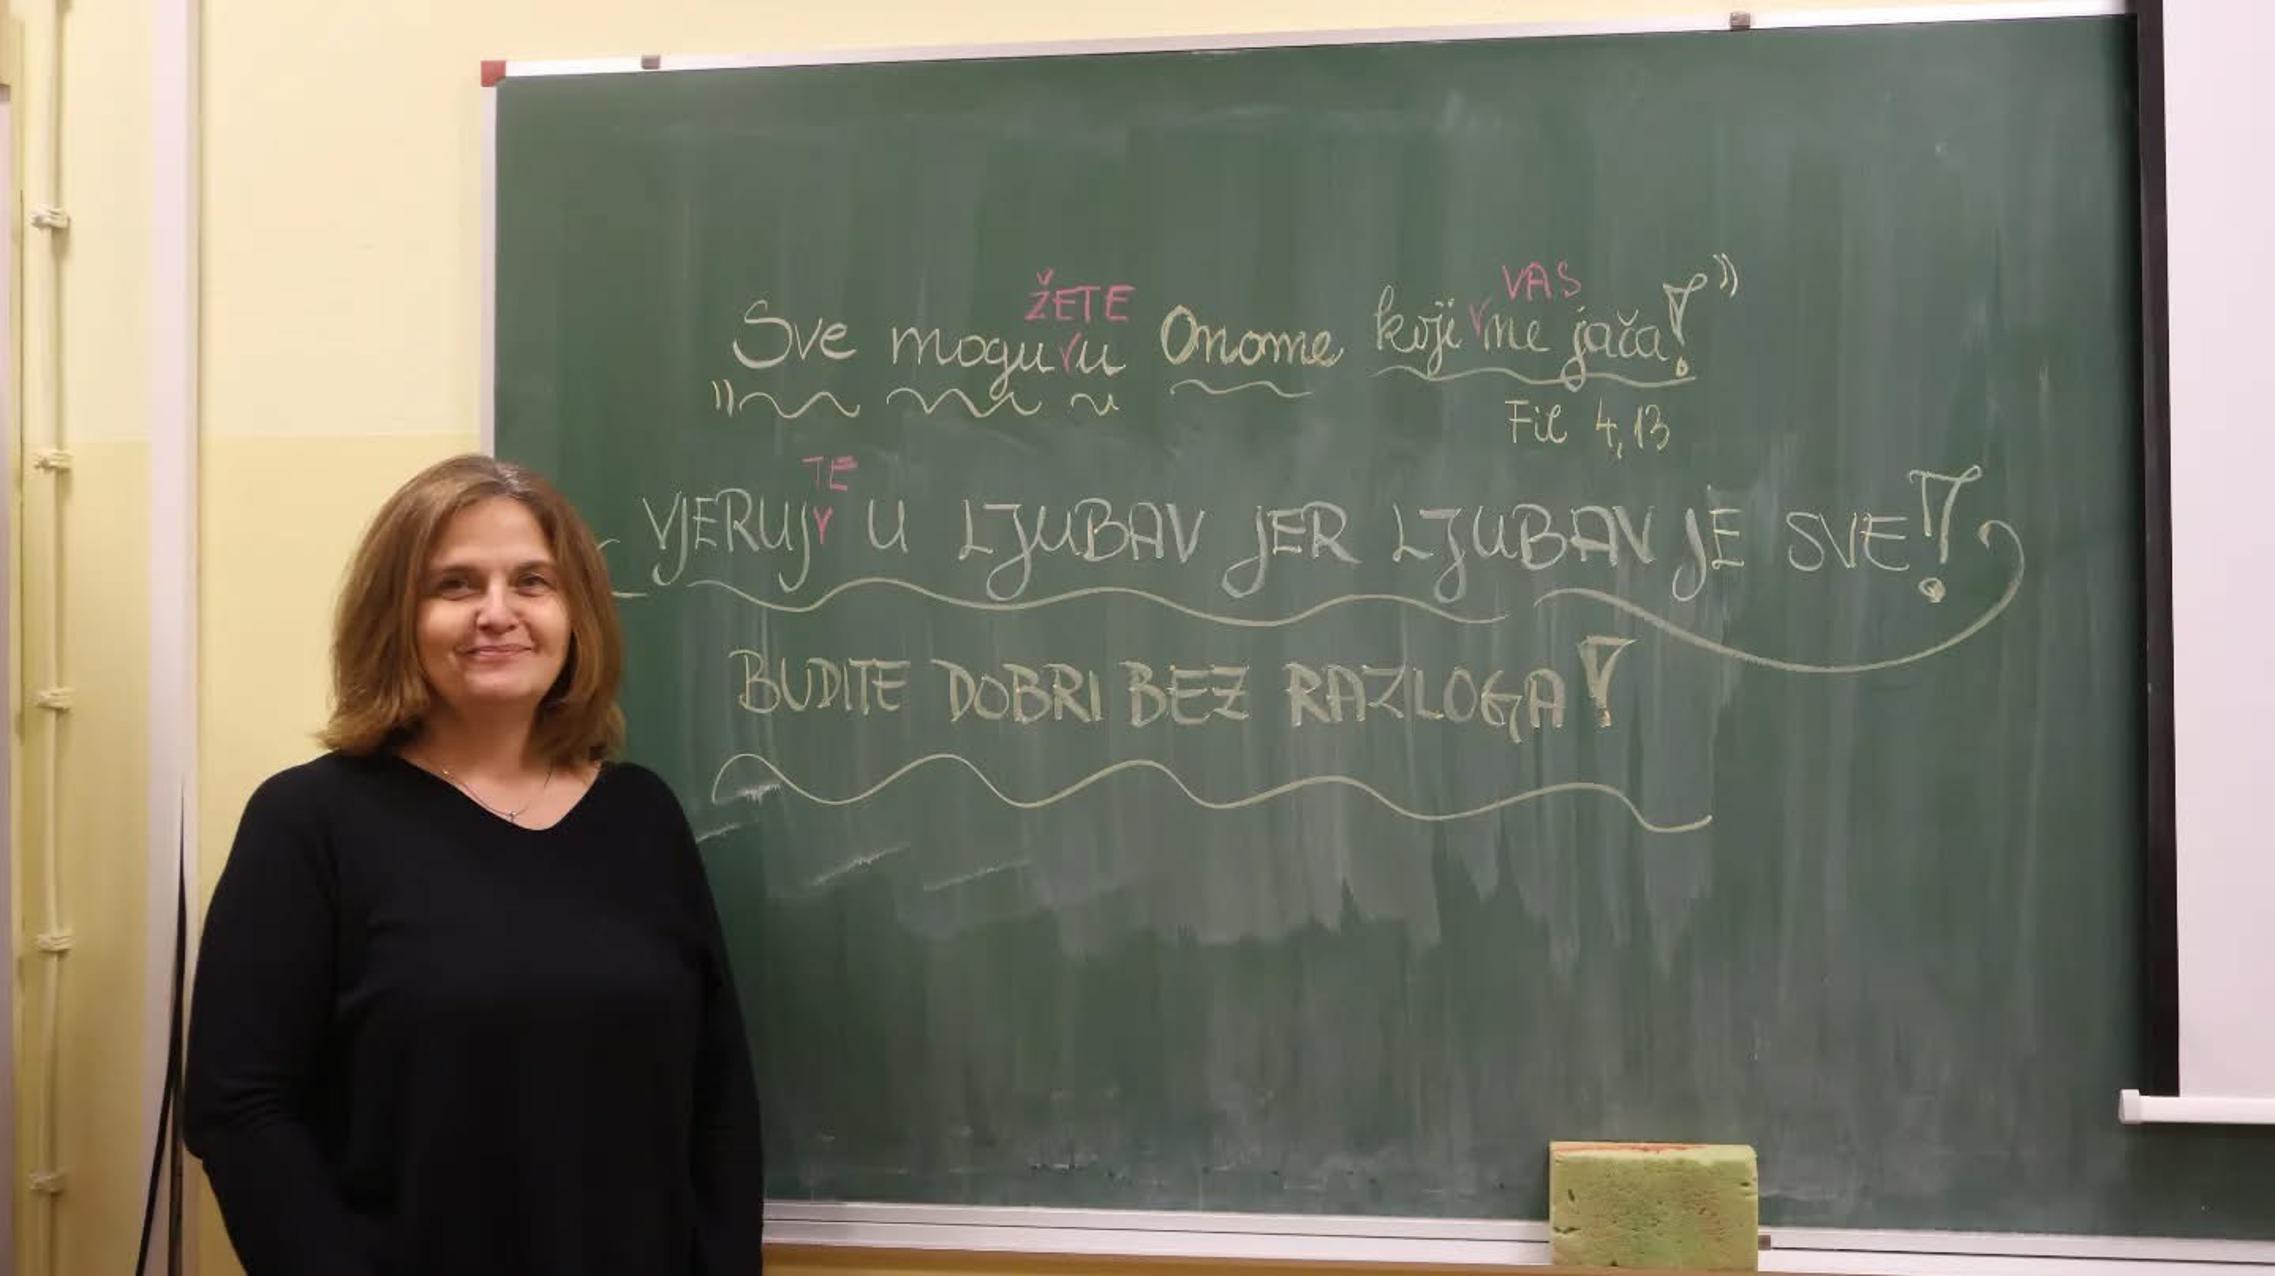 ŽETE VAS
„Sve mogu u Onome koji me jača!”
Fil 4,13
TE
VJERUJ U LJUBAV JER LJUBAV JE SVE!
BUDITE DOBRI BEZ RAZLOGA!